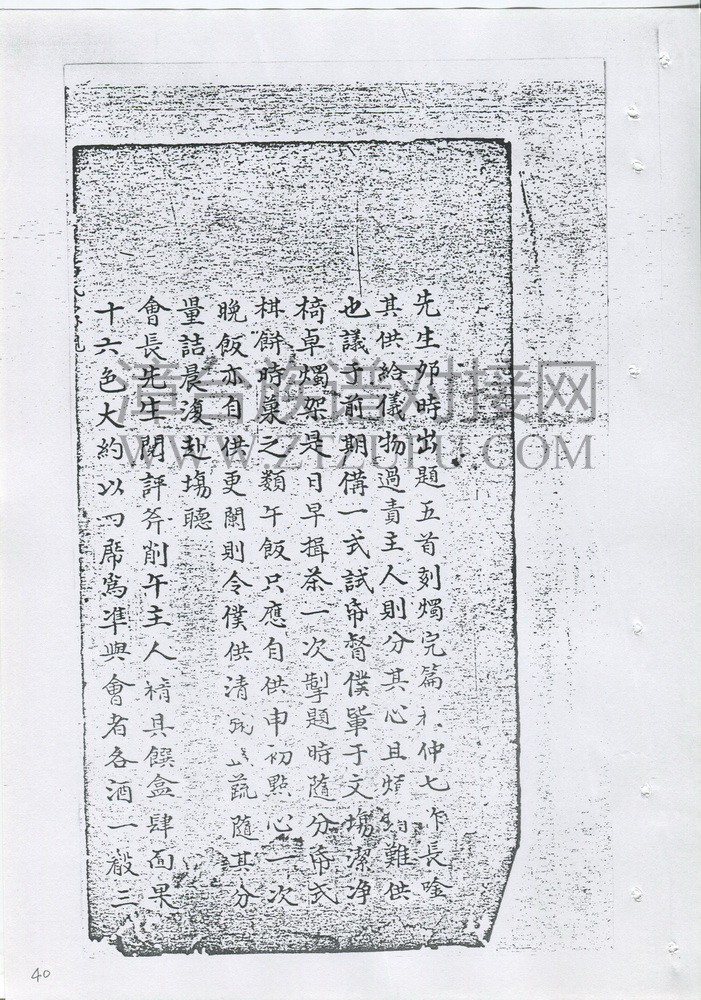 先生卯時出題五首刻燭完篇 仲七作長吟
其供給儀物過責主人則分其心且煩 難供
也議于前期備一式試帘督僕輩于文塲潔净
椅卓燭架是日早揖茶一次掣題時隨分帘式
棋餅時菓之類午飯只應自供申初點心一次
晚飯亦自供更闌則令僕供清 蔬隨其分
量詰晨復赴塲聽
會長先生閱評斧削午主人精具饌盒肆面果
十六色大約以四席爲準與會者各酒一殽三
漳台族谱对接网
WWW.ZTZUPU.COM
40